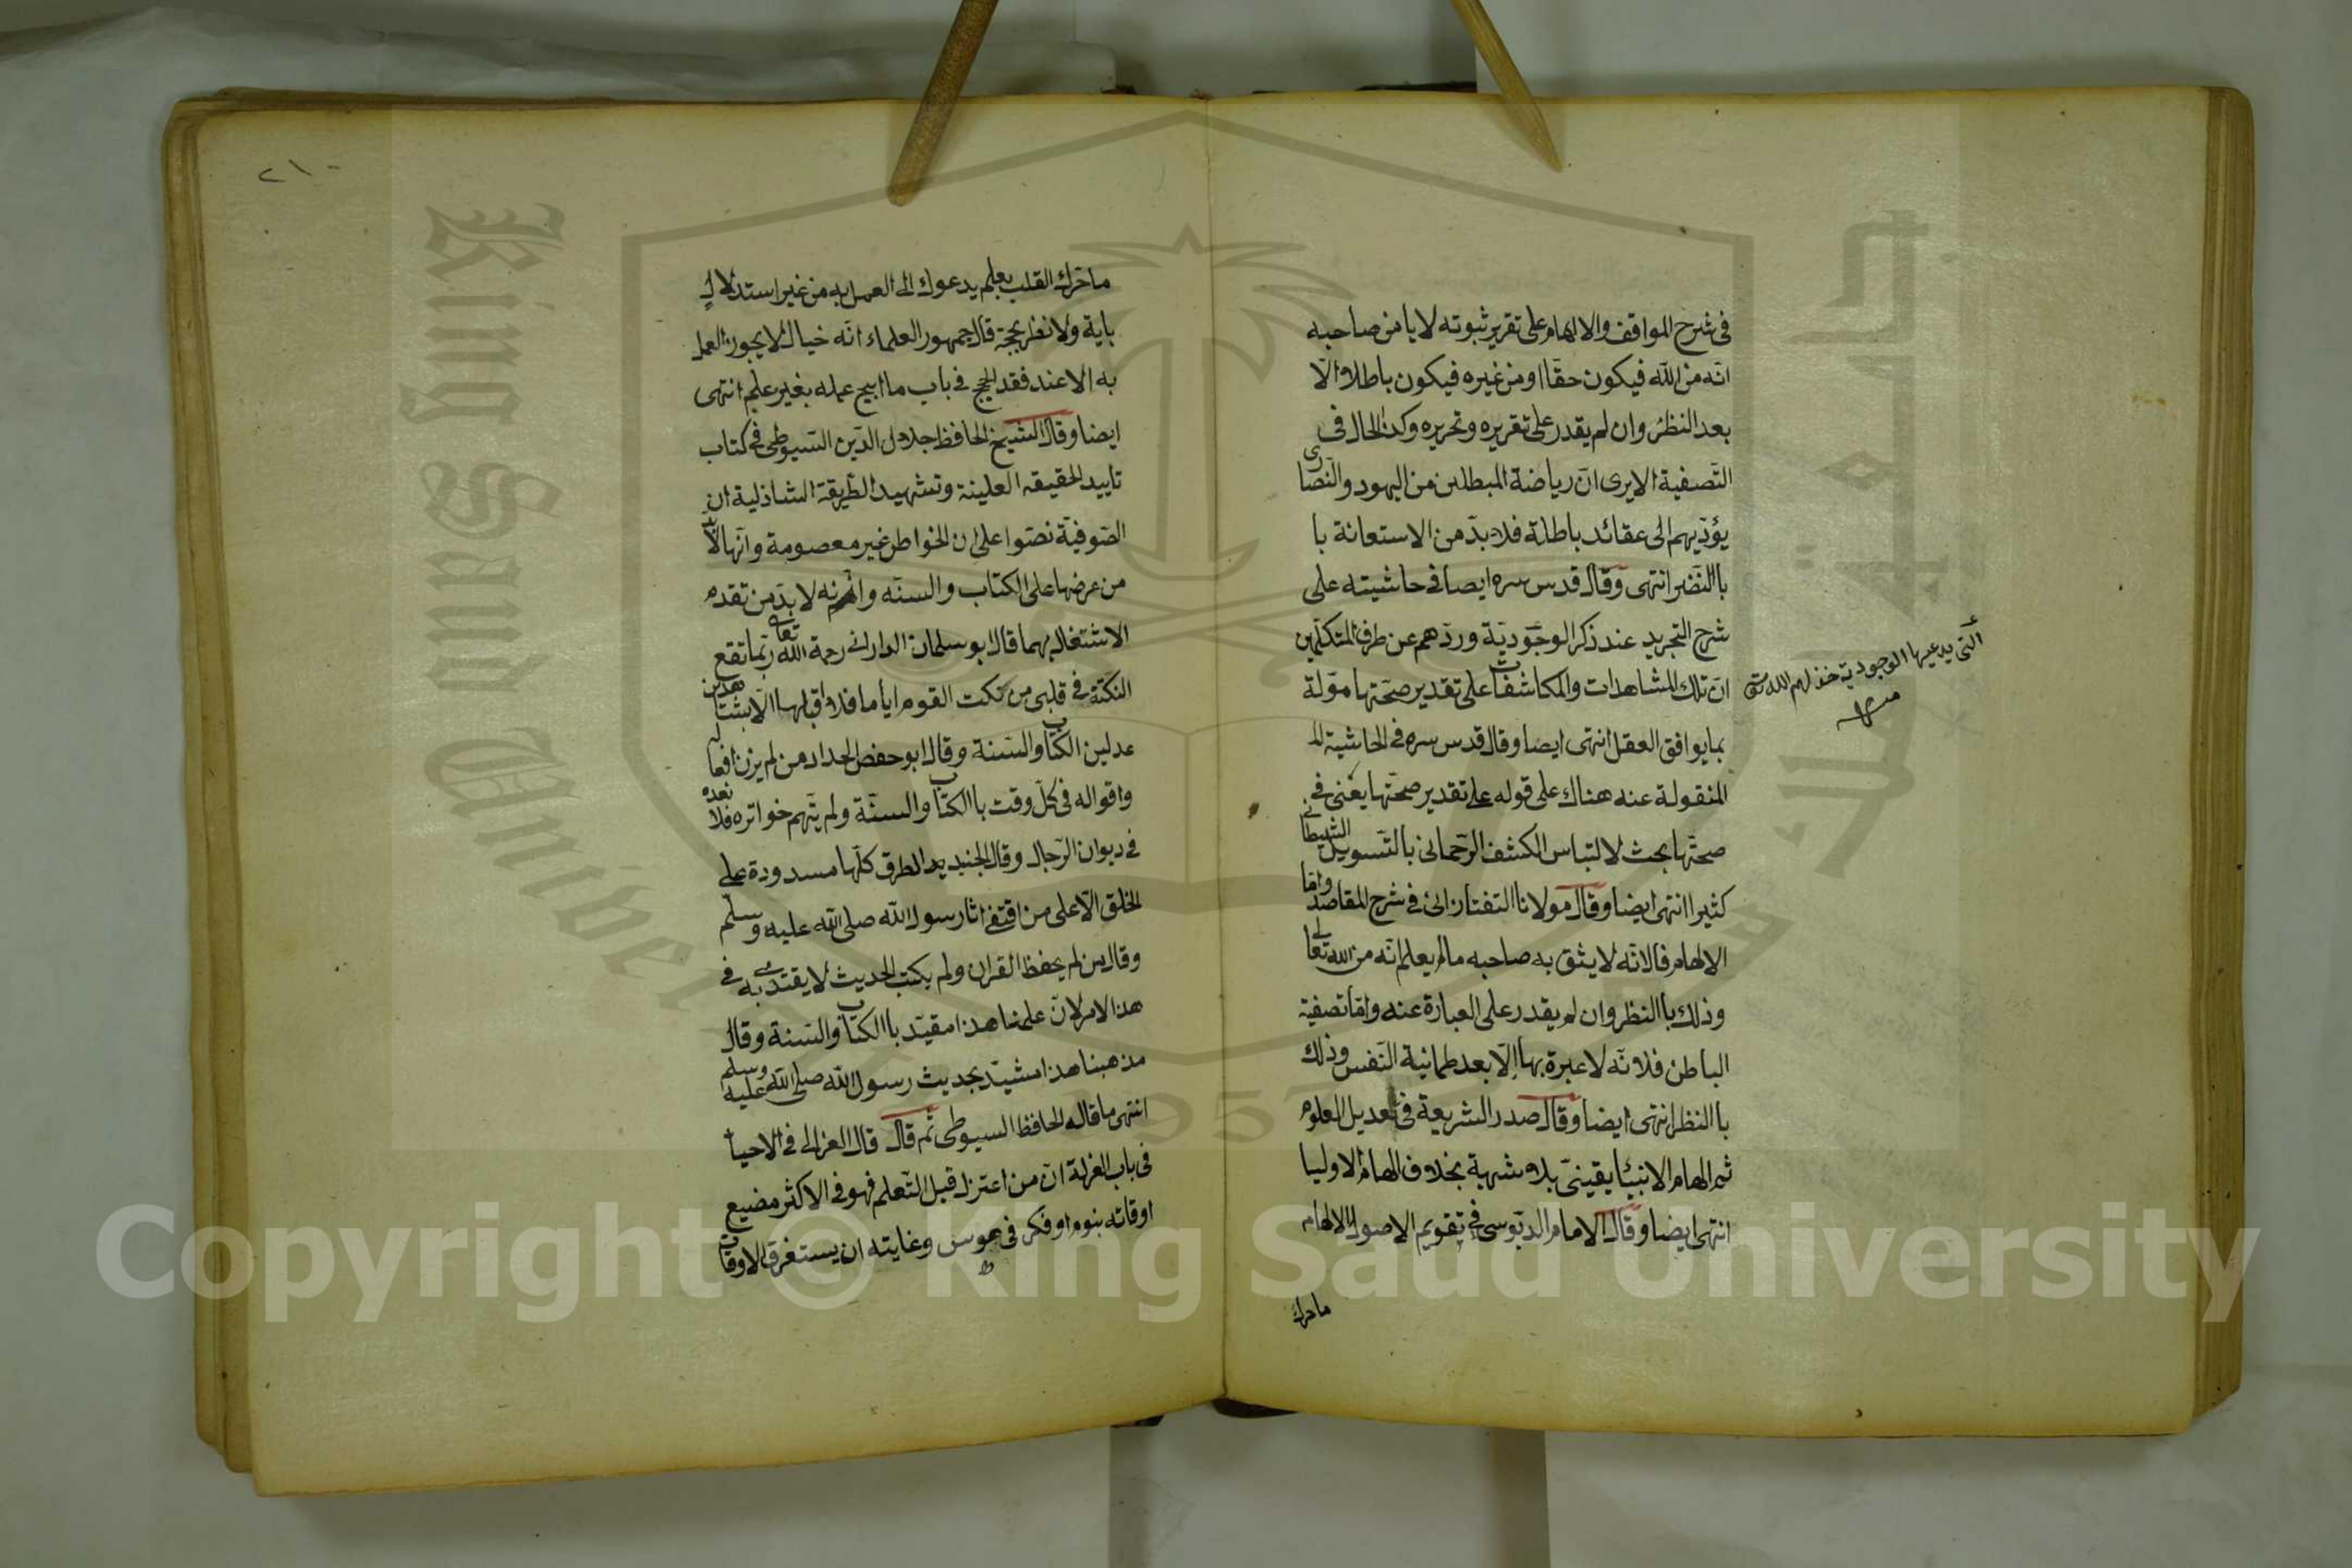 في شرح المواقف والالهام على تقرير ثبوته لا يامن صاحبه
انّه من الله فيكون حقّا او من غيره فيكون باطلا الّا
بعد النظر وان لم يقدر على تقريره وتحريره وكذا الحال في
التّصفية الا يرى انّ رياضة المبطلين من اليهود والنّصارى
يؤدّيهم الى عقائد باطلة فلا بدّ من الاستعانة با
با النّضر انتهى وقال قدس سره ايضا في حاشيته على
شرح التجريد عند ذكر الوجوديّة وردّهم عن طرف المتكلّمين
انّ تلك المشاهدات والمكاشفات على تقدير صحّتها مؤلة
التى يدعيها الوجودية خذلهم الله تعالى
منه
بما يوافق العقل انتهى ايضا وقال قدس سره في الحاشية الم
المنقولة عنه هناك على قوله على تقدير صحّتها يعنى في
صحتّها بحث لالتباس الكشف الرّحمانى بالتّسويل الشيطانى
كثيرا انتهى ايضا وقال مولانا التفتازانى في شرح المقاصد وامّا
الالهام فلانّه لا يثق به صاحبه ما لم يعلم انّه من الله تعالى
وذلك با النظر وان لم يقدر على العبارة عنه وامّا تصفية
الباطن فلانّه لا عبرة بها الّا بعد طمانية النّفس وذلك
با النظر انتهى ايضا وقال صدر الشريعة في تعديل العلوم
ثم الهام الانبيا يقينىّ بلا شبهة بخلاف الهام الاوليا
انتهى ايضا وقال الامام الدبّوسى في تقويم الاصول الالهام
ما حرك
٢١٠
ما حرّك القلب بعلم يدعوك الى العمل به من غير استدلال
باية ولا نظر بحجّة قال جمهور العلماء انّه خيال لا يجوز العمل
به الا عند فقد الحجج في باب ما ابيح عمله بغير علم انتهى
ايضا وقال الشيخ الحافظ جلال الدّين السّيوطى في كتاب
تاييد الحقيقه العلينة وتشهيد الطّريقة الشاذلية ان
الصّوفيّة نصّوا على ان الخواطر غير معصومة وانّها لا بدّ
من عرضها على الكتاب والسنّه وانّه لا بدّ من تقدم
الاشتغال بهما قال ابو سلمان الدارانى رحمة الله تعالى ربّما تقع
النكتة في قلبى من نكت القوم ايأما فلا اقبلها الّا بشاهدين
عدلين الكتاب والسّنة وقال ابو حفص الحداد من لم يزن افعاله
واقواله في كلّ وقت با الكتاب والسنّة ولم يتّهم خواتره فلا نعده
في ديوان الرّجال وقال الجنيد الطرق كلّها مسدودة على
الخلق الّا على من اقتفى اثار رسول الله صلى الله عليه وسلّم
وقال من لم يحفظ القران ولم يكتب الحديث لا يقتدى به في
هذا الامر لانّ علمنا هذا مقيّد با الكتاب والسّنة وقال
مذهبنا هذا مشيّد بحديث رسول الله صلى الله عليه وسلم
انتهى ما قاله الحافظ السيوطى ثم قال قال الغزالى في الاحيا
في باب العزلة انّ من اعتزل قبل التّعلم فهو في الاكثر مضيع
اوقاته بنوم او فكر في هوس وغايته ان يستغرق الاوقات
King Saud University
Copyright © King Saud University
1957